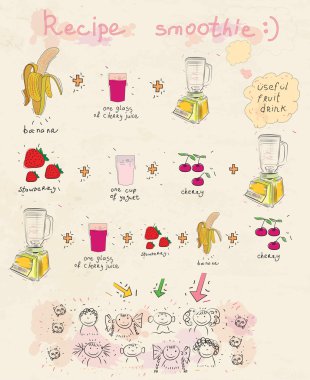 Recipe smoothie :)
useful
fruit
drink
banana
one glass
of cherry juice
strawberry
one cup
of yogurt
cherry
one glass
of cherry juice
strawberry
banana
cherry